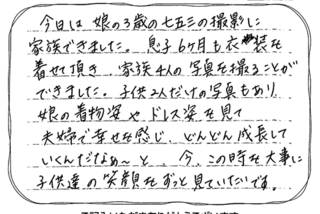 今日は娘の3歳の七五三の撮影に
家族できました。息子6ヶ月も衣装を
着せて頂き、家族4人の写真を撮ることが
できました。子供2人だけの写真もあり、
娘の着物姿やドレス姿を見て
夫婦で幸せを感じ、どんどん成長して
いくんだなぁ〜と、今、この時を大事に
子供達の笑顔をずっと見ていたいです。